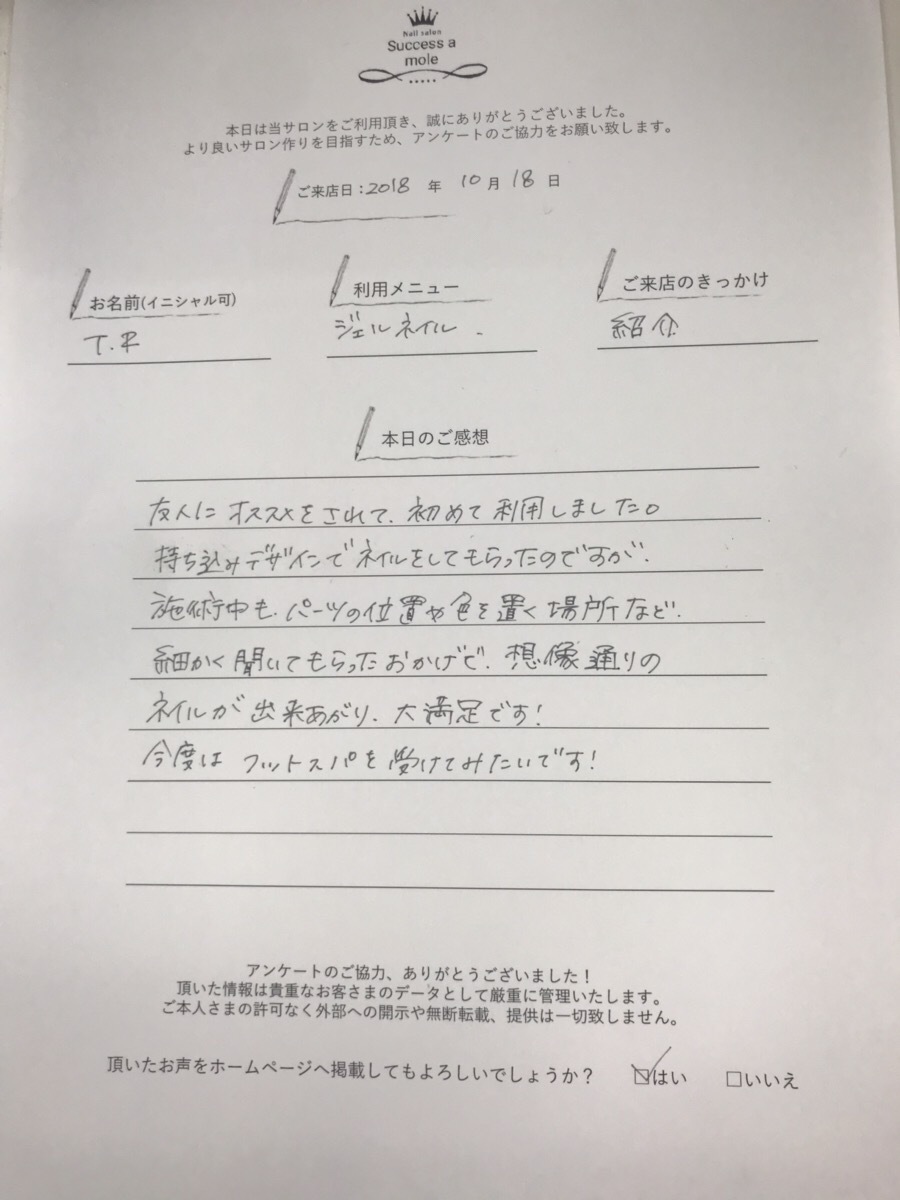 Nail salon
Success a
mole
本日は当サロンをご利用頂き、誠にありがとうございました。
より良いサロン作りを目指すため、アンケートのご協力をお願い致します。
ご来店日：2018 年 10 月 18 日
お名前(イニシャル可)
T.R
利用メニュー
ジェルネイル.
ご来店のきっかけ
紹介
本日のご感想
友人にオススメをされて、初めて利用しました。
持ち込みデザインでネイルをしてもらったのですが、
施術中も、パーツの位置や色を置く場所など、
細かく聞いてもらったおかげで、想像通りの
ネイルが出来あがり、大満足です!
今度はフットスパを受けてみたいです!
アンケートのご協力、ありがとうございました！
頂いた情報は貴重なお客さまのデータとして厳重に管理いたします。
ご本人さまの許可なく外部への開示や無断転載、提供は一切致しません。
頂いたお声をホームページへ掲載してもよろしいでしょうか？ ☑はい □いいえ